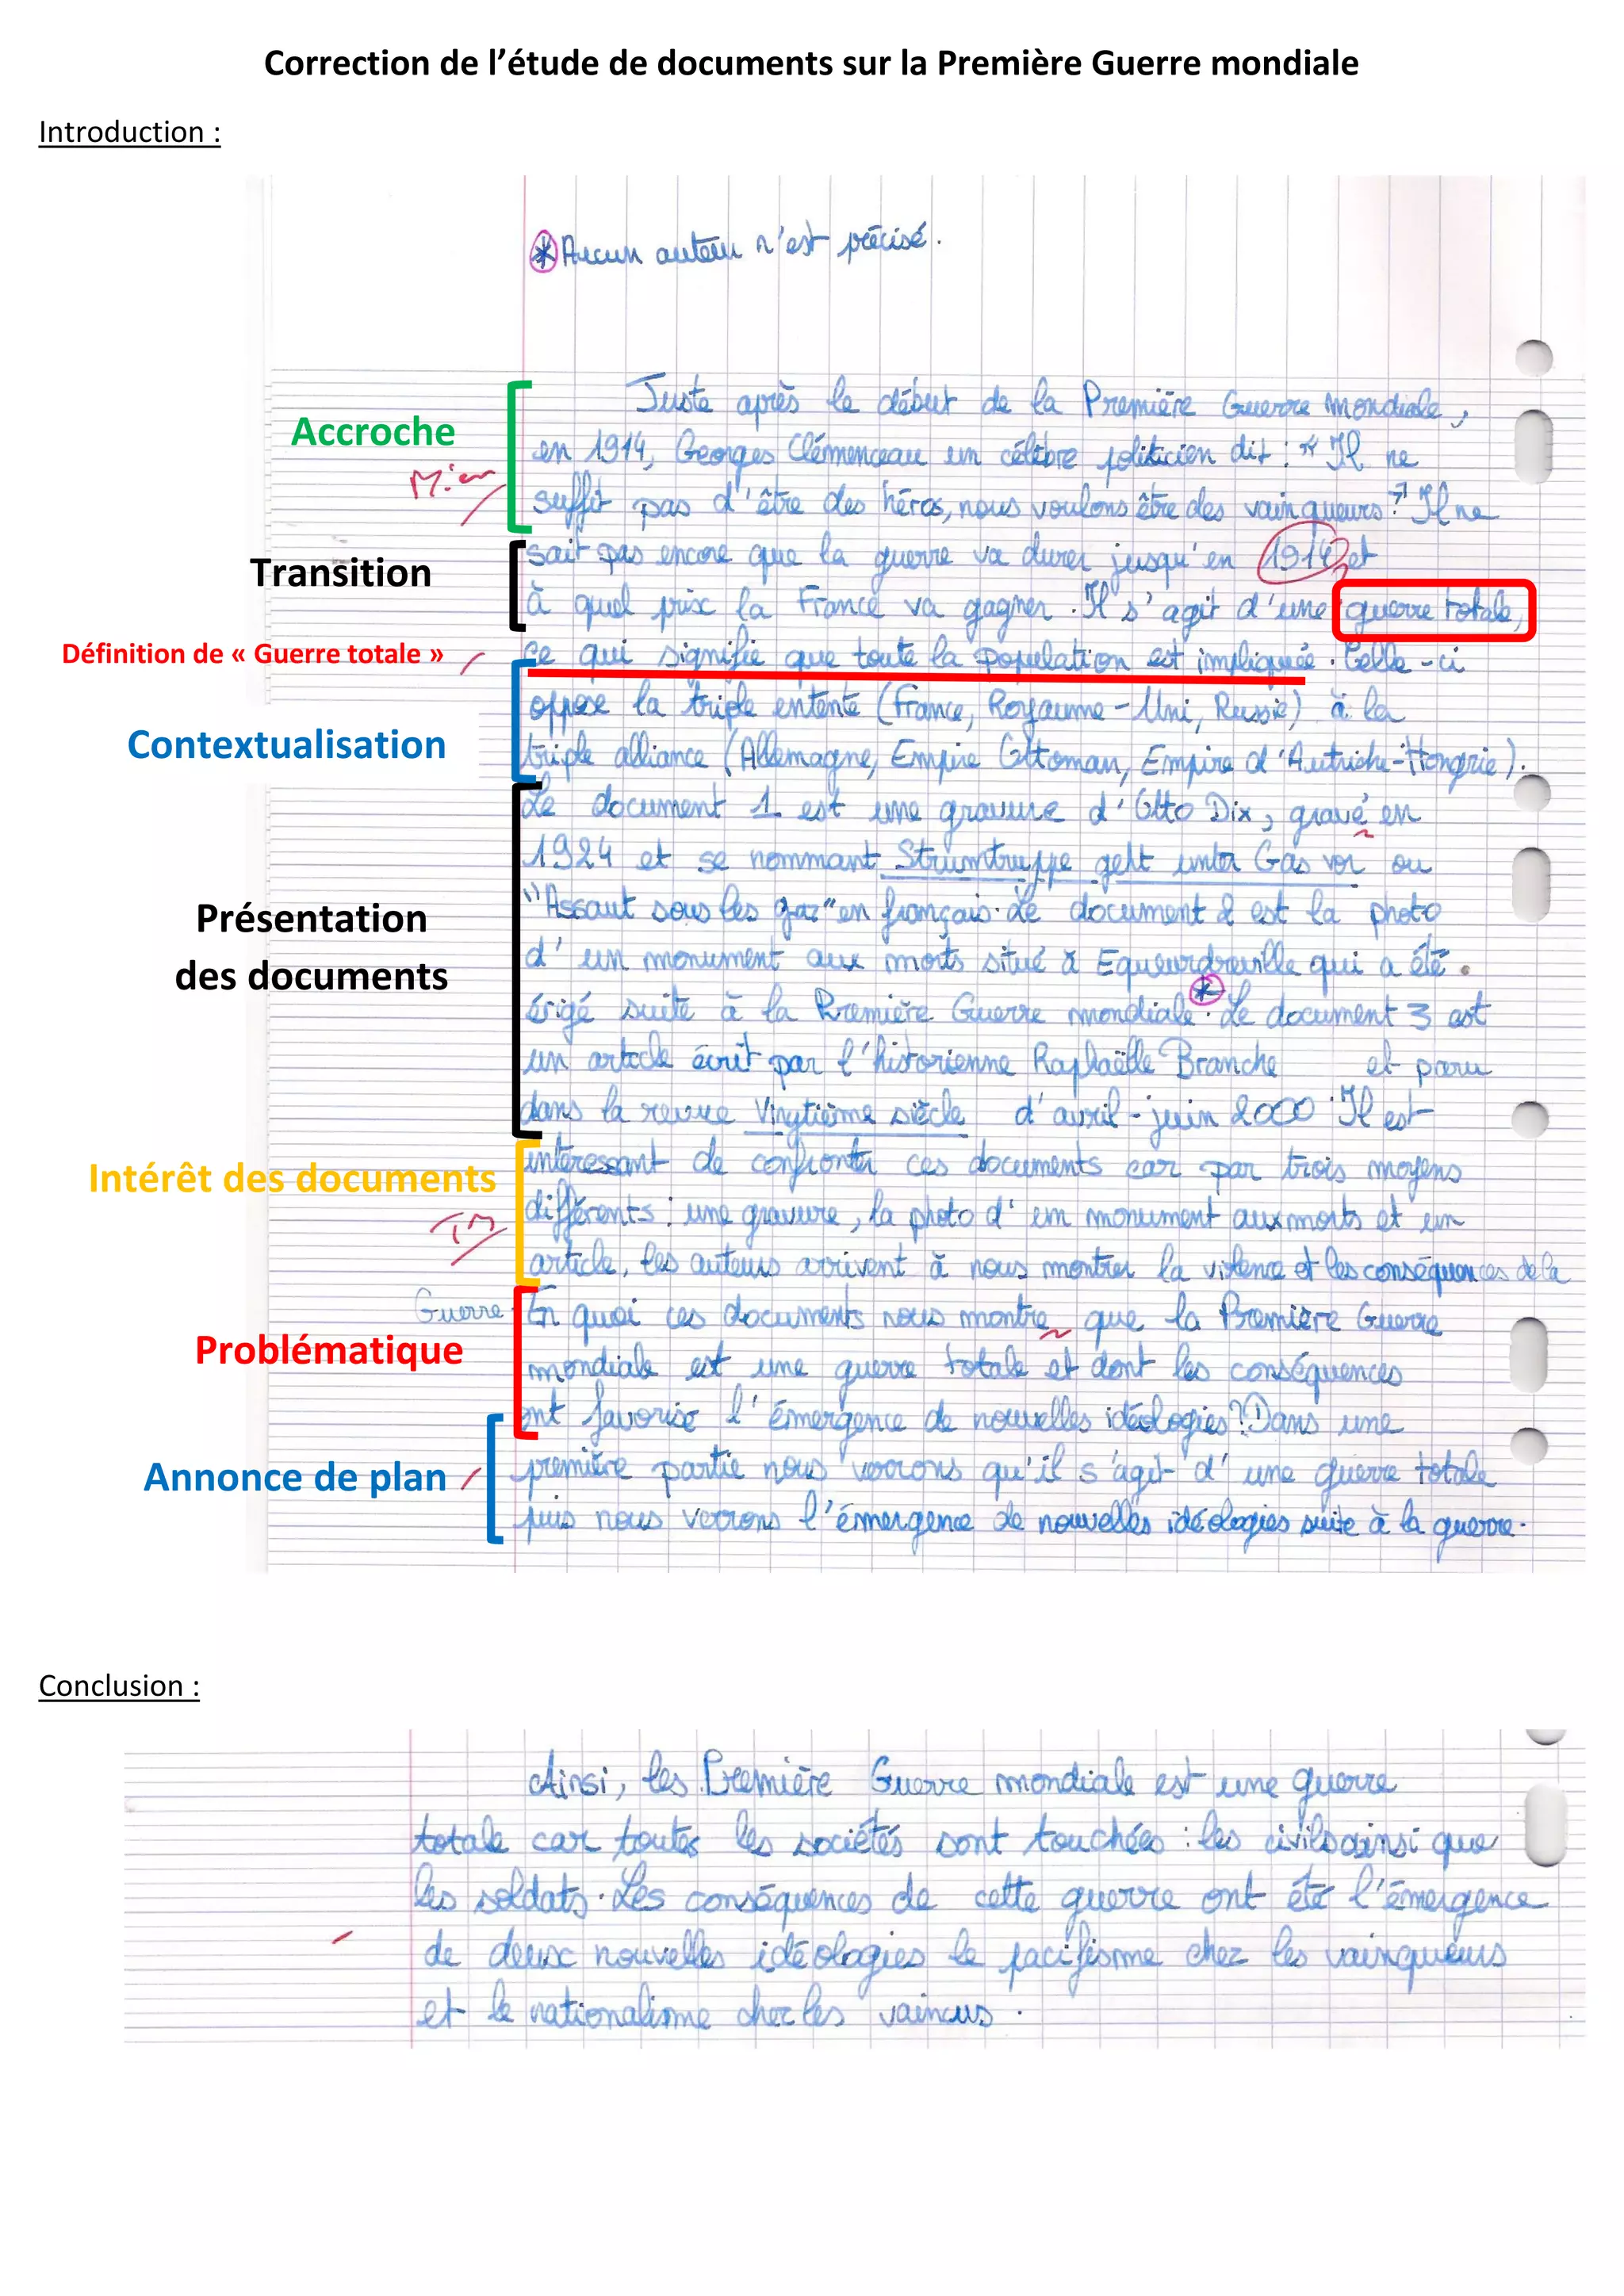 Correction de l'étude de documents sur la Première Guerre mondiale
Introduction :
* Aucun auteur n'est précisé.
Accroche
Juste après le début de la Première Guerre mondiale,
en 1914, Georges Clémenceau un célèbre politicien dit : " Il ne
suffit pas d'être des héros, nous voulons être des vainqueurs". Il ne
Transition
sait pas encore que la guerre va durer jusqu'en 1914 et
à quel prix la France va gagner. Il s'agit d'une guerre totale,
Définition de « Guerre totale »
ce qui signifie que toute la population est impliquée. Celle-ci
Contextualisation
oppose la triple entente (France, Royaume-Uni, Russie) à la
triple alliance (Allemagne, Empire Ottoman, Empire d'Autriche-Hongrie).
Présentation
des documents
Le document 1 est une gravure d'Otto Dix, gravé en
1924 et se nommant Strumtruppe geht unter Gas vor ou
"Assaut sous les gaz" en français. Le document 2 est la photo
d'un monument aux morts situé à Equeurdreville qui a été
érigé suite à la Première Guerre mondiale.* Le document 3 est
un article écrit par l'historienne Raphaëlle Branche et paru
dans la revue Vingtième siècle d'avril-juin 2000. Il est
Intérêt des documents
intéressant de confronter ces documents car par trois moyens
TB
différents : une gravure, la photo d'un monument aux morts et un
article, les auteurs arrivent à nous montrer la violence et les conséquences de la
Guerre.
Problématique
En quoi ces documents nous montre que la Première Guerre
mondiale est une guerre totale et dont les conséquences
ont favorisé l'émergence de nouvelles idéologies? Dans une
Annonce de plan
première partie nous verrons qu'il s'agit d'une guerre totale
puis nous verrons l'émergence de nouvelles idéologies suite à la guerre.
Conclusion :
Ainsi, les Première Guerre mondiale est une guerre
totale car toutes les sociétés sont touchées : les civils ainsi que
les soldats. Les conséquences de cette guerre ont été l'émergence
de deux nouvelles idéologies le pacifisme chez les vainqueurs
et le nationalisme chez les vaincus.